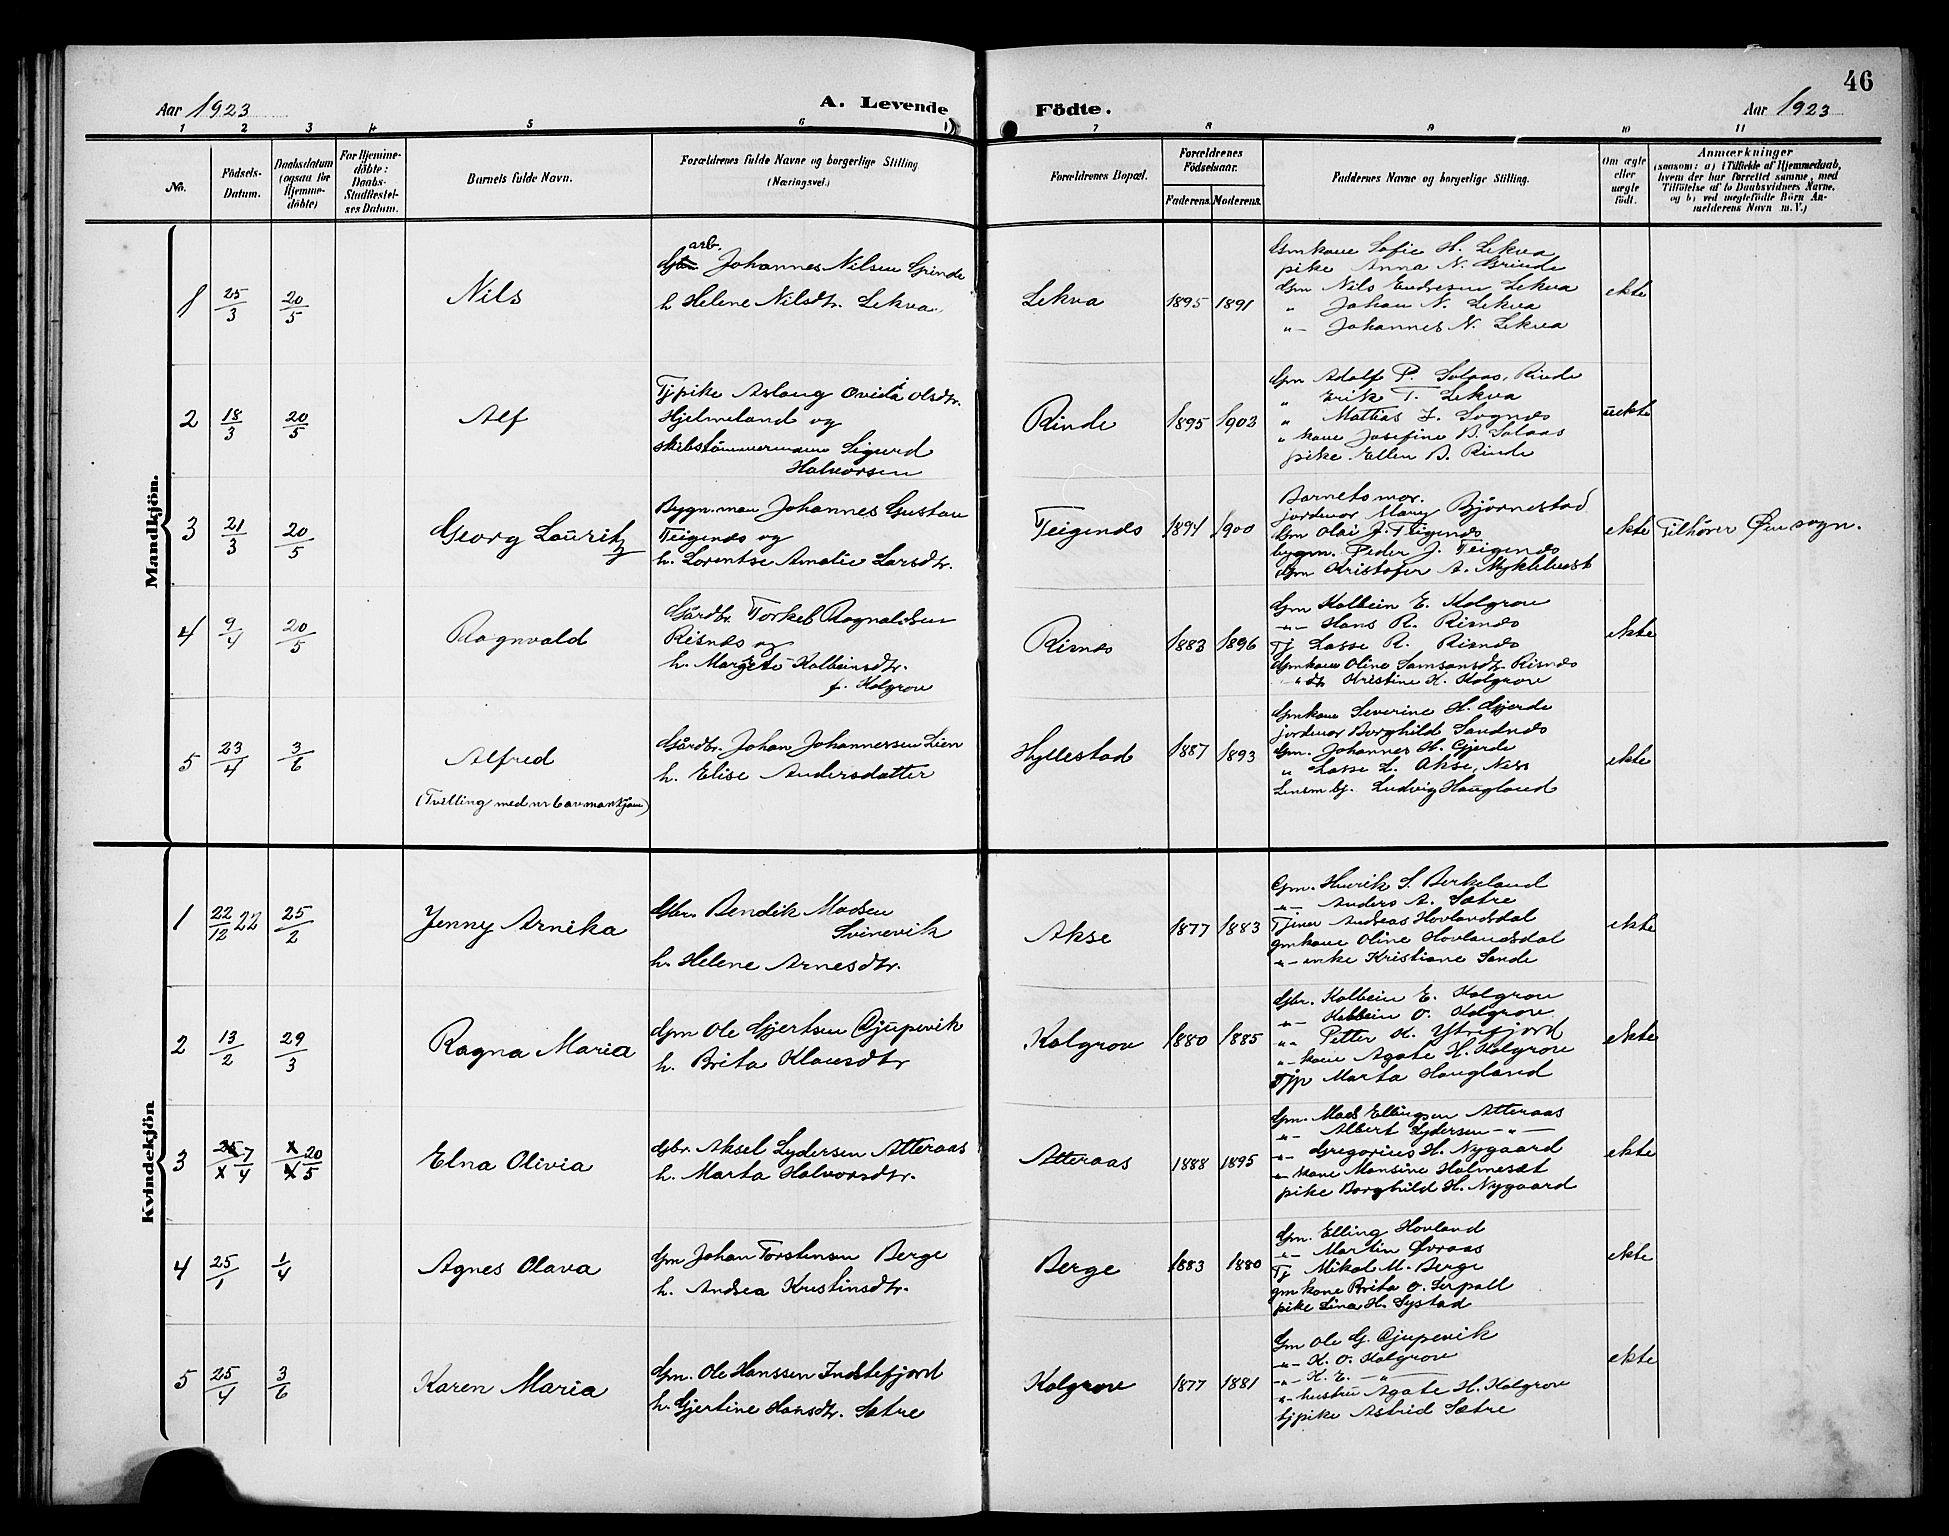 46
Aar 1923
A. Levende Födte.
Aar 1923
1 2 3 4 5 6 7 8 9 10 11
No.
Födsels-Datum.
Daabsdatum (ogsaa for Hjemme-döbte)
For Hjemme-döbte: Daabs-Stadfæstel-ses Datum.
Barnets fulde Navn.
Forældrenes fulde Navne og borgerlige Stilling
(Næringsvei.)
Forældrenes Bopæl.
Forældrenes Födselsaar.
Faderens. Moderens.
Faddernes Navne og borgerlige Stilling.
Om ægte eller uægte födt.
Anmærkninger
(saasom: a) i Tilfælde af Hjemmedaab, hvem der har forrettet samme, med Tilföielse af to Daabsvidners Navne. og b) ved uægtefödte Börn An-melderens Navn m. V.)
Mandkjön.
1 25/3 20/5 Nils
arb. Johannes Nilsen Grinde
h Helene Nilsdtr. Lekva
Lekva 1895 1891
Gmkone Sofie H. Lekva
pike Anna N. Grinde
Gm Nils Endresen Lekva
" Johan N. Lekva
"– Johannes N. Lekva
ekte
2 18/3 20/5 Alf
Tjpike Aslaug Ovidia Olsdtr.
Hjelmeland og
skibstömmermann Sigurd
Halvorsen
Rinde 1895 1903
Gm Adolf P. Solaas, Rinde
" Erik T. Lekva
" Mattias J. Sognes
" kone Josefine B. Solaas
pike Ellen B. Rinde
uekte
3 21/3 20/5 Georg Lauritz
Bygn.man Johannes Gustav
Teigenes og
h. Lorentse Amalie Larsdtr.
Teigenes 1894 1900
Barnets mor.
jordmor Mary Bjørnestad
Gm Olai J. Teigenes
bygm. Peder J. Teigenes
Gm Kristofer A. Myklebust
ekte Tilhører Øensogn.
4 9/4 20/5 Ragnvald
Gårdbr. Torkel Ragnaldsen
Risnes og
h. Margete Kolbeinsdtr.
f. Kolgrov
Risnes 1883 1896
Gm Kolbein E. Kolgrov
–"– Hans R. Risnes
Tj Lasse R. Risnes
Gmkone Oline Samsonsdtr. Risnes
–"dtr Kristine K. Kolgrov
ekte
5 23/4 3/6 Alfred
(Tvilling med nr 6 av mankjøn)
Gårdbr. Johan Johannessen Lien
h. Elise Andersdatter
Hyllestad 1887 1893
Gmkone Severine H. Gjerde
jordmor Borghild Sandnes
Gm. Johannes H. Gjerde
" Lasse L. Akse, Nes
Lensm bj. Ludvig Haugland
ekte
Kvindekjön
1 22/12 22 25/2 Jenny Arnika
Gbr. Bendik Madsen
Svinevik
h. Helene Arnesdtr.
Akse 1877 1883
Gm. Henrik S. Berkeland
–"– Anders A. Sætre
Tjener Andreas Hovlandsdal
gmkone Oline Hovlandsdal
–"– enke Kristiane Sande
ekte
2 13/2 29/3 Ragna Maria
Gm Ole Gjertsen Djupevik
h. Brita Klausdtr
Kolgrov 1880 1885
Gbr. Kolbein E. Kolgrov
–"– Kolbein O. Kolgrov
"" Petter K. Ytrefjord
"– kone Agate H. Kolgrov
Tjp Marta Haugland
ekte
3 7/4 20/5 Elna Olivia
Gbr. Aksel Lydersen Atteraas
h. Marta Halvorsdtr.
Atteraas 1888 1895
Gm. Mads Ellingsen Atteraas
–"– Albert Lydersen –"–
–"– Gregorius H. Nygaard
–"– kone Monsine Holmeset
pike Borghild H. Nygaard
ekte
4 25/1 1/4 Agnes Olava
Gm Johan Torstensen Berge
h. Andrea Kristinsdtr.
Berge 1883 1880
Gm. Elling Hovland
–"– Martin Øvraas
Tj Mikal M. Berge
gmkone Brita O. Serpoll
pike Lina H. Systad
ekte
5 25/4 3/6 Karen Maria
Gm. Ole Hanssen Indstefjord
h. Gjertine Hansdtr. Sætre
Kolgrov 1877 1881
Gm Ole G. Djupevik
–"– K. O. Kolgrov
–"– K. E. –"–
–"– hustru Agate H. Kolgrov
tjpike Astrid Sætre
ekte